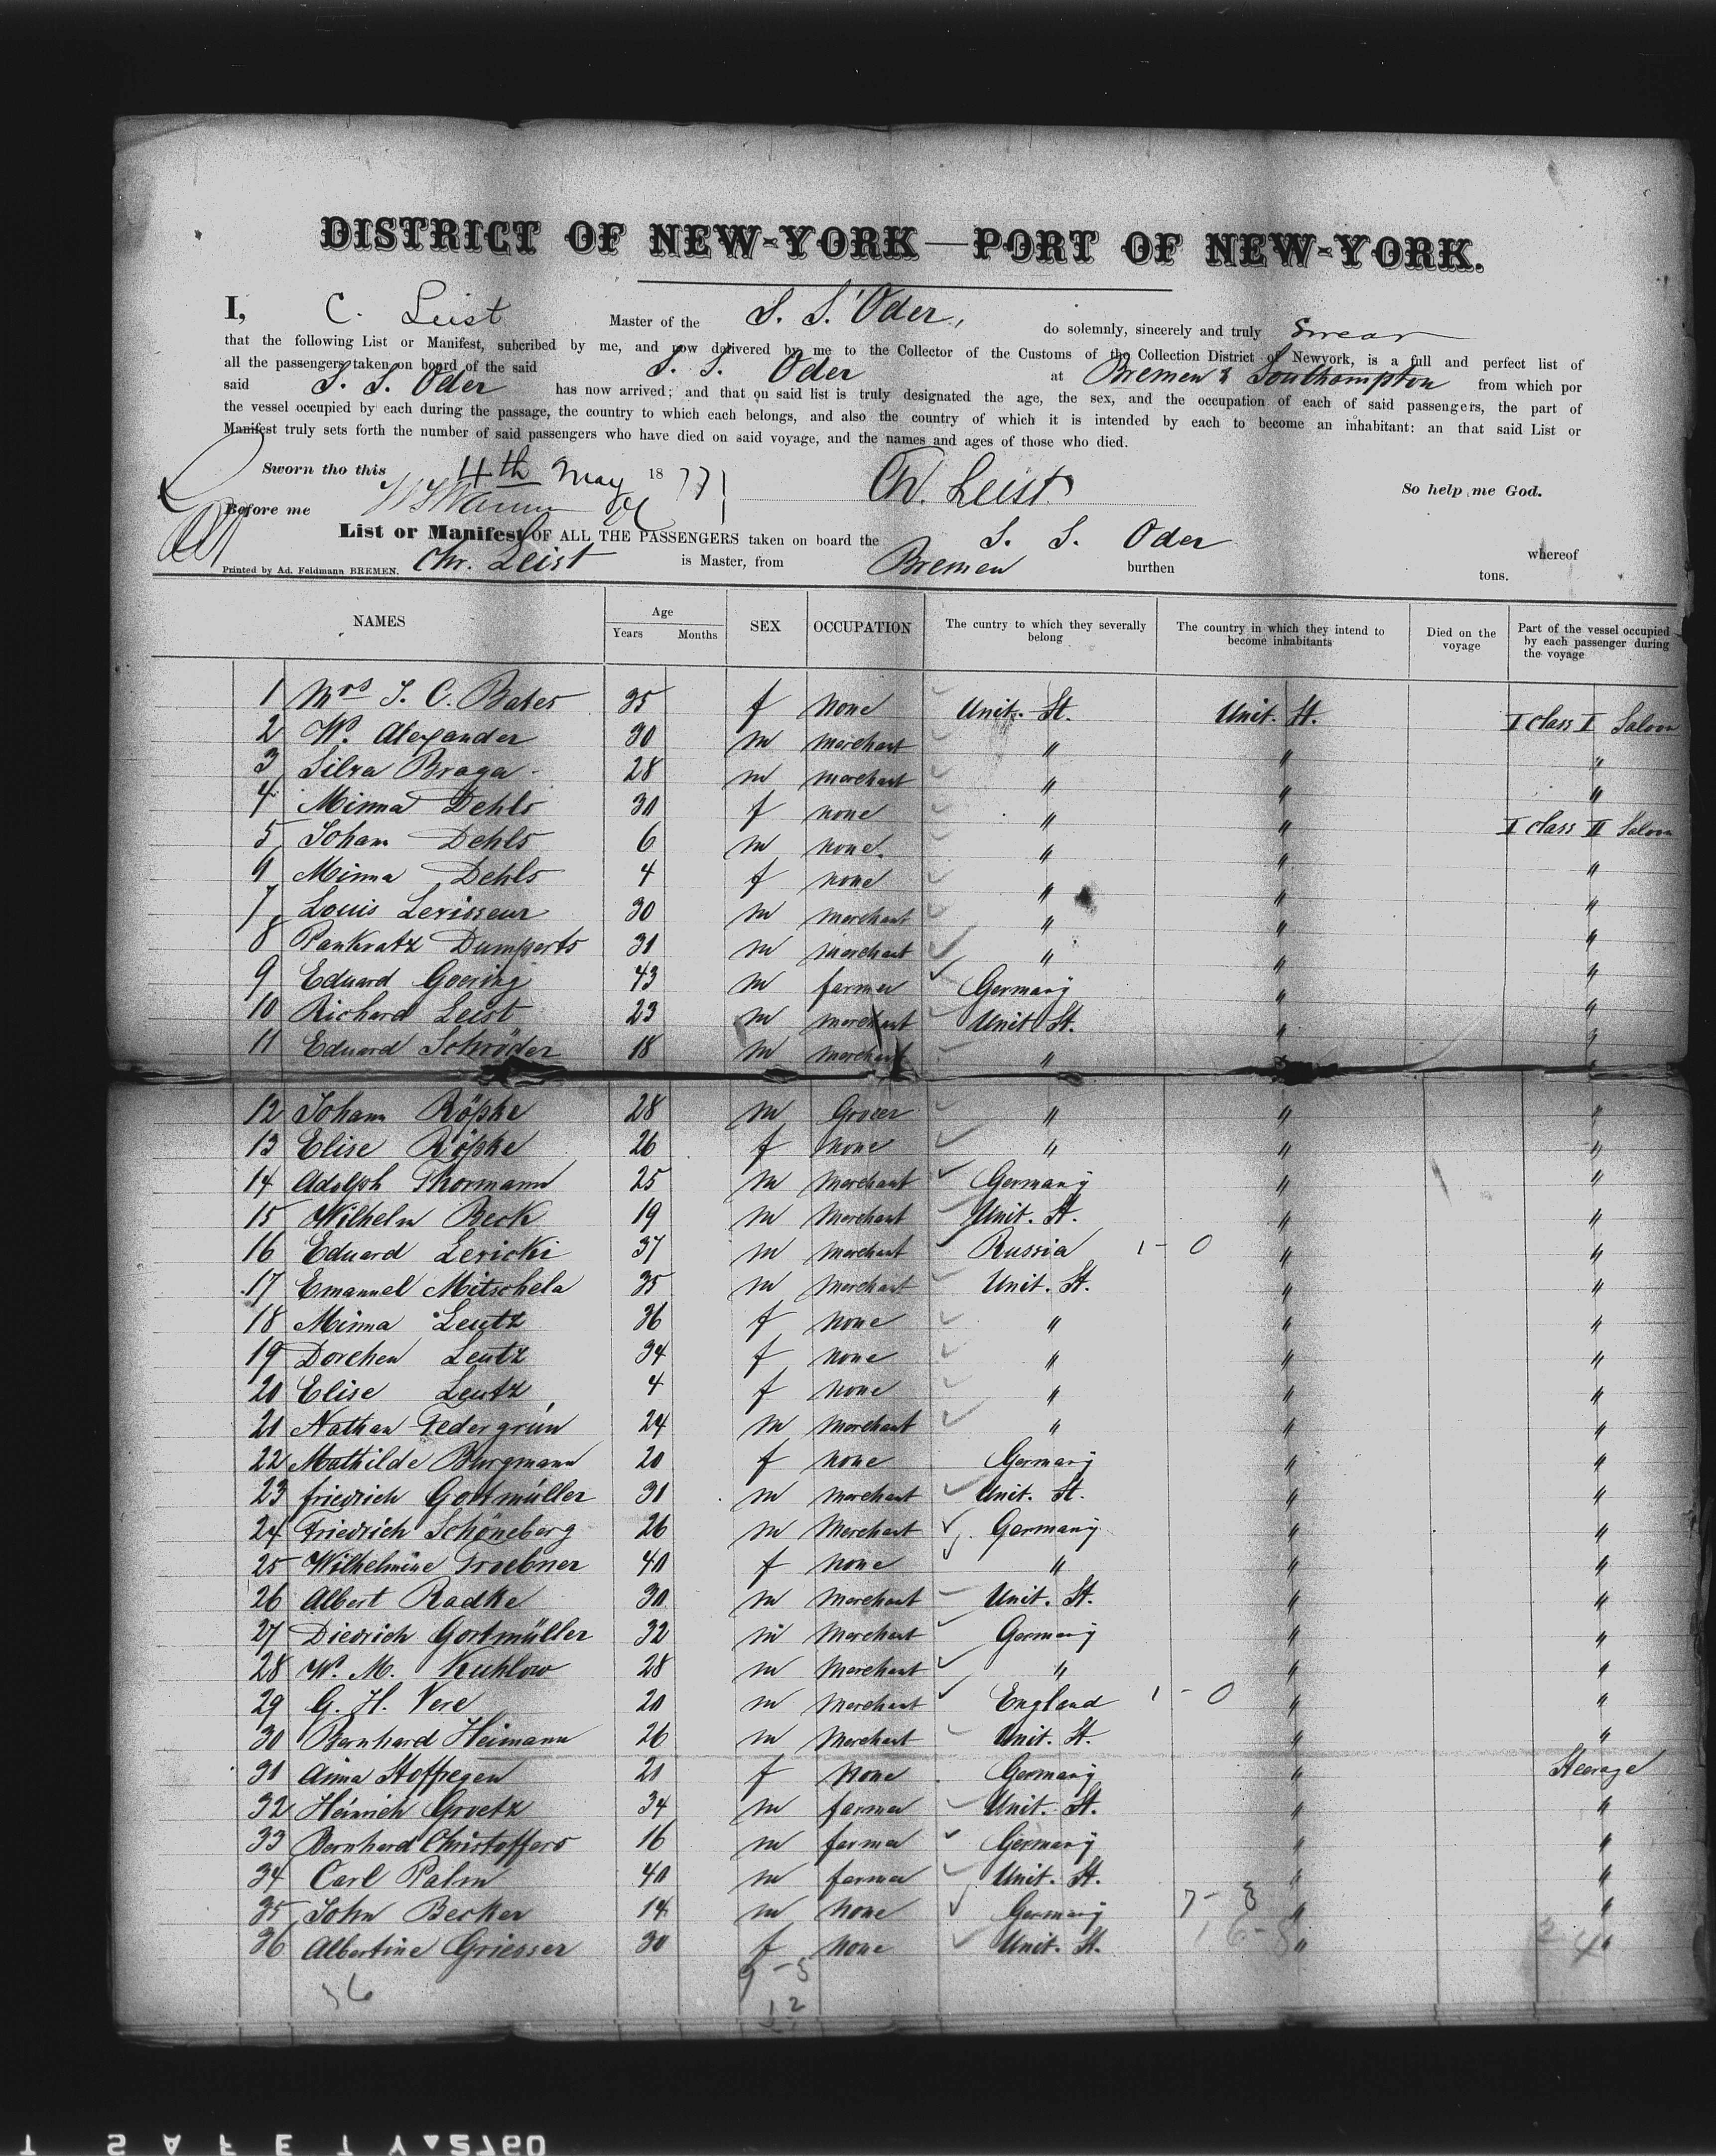 DISTRICT OF NEW-YORK—PORT OF NEW-YORK.
I, C. Leist Master of the S. S. Oder, do solemnly, sincerely and truly Swear
that the following List or Manifest, subcribed by me, and now delivered by me to the Collector of the Customs of the Collection District of Newyork, is a full and perfect list of
all the passengers taken on board of the said S. S. Oder at Bremen & Southampton from which por
said S. S. Oder has now arrived; and that on said list is truly designated the age, the sex, and the occupation of each of said passengers, the part of
the vessel occupied by each during the passage, the country to which each belongs, and also the country of which it is intended by each to become an inhabitant: an that said List or
Manifest truly sets forth the number of said passengers who have died on said voyage, and the names and ages of those who died.
Sworn tho this 4th May 1877 Chr. Leist So help me God.
Before me
List or Manifest OF ALL THE PASSENGERS taken on board the S. S. Oder whereof
Printed by Ad. Feldmann BREMEN. Chr. Leist is Master, from Bremen burthen tons.
NAMES Age Years Months SEX OCCUPATION The cuntry to which they severally belong The country in which they intend to become inhabitants Died on the voyage Part of the vessel occupied by each passenger during the voyage
1 Mrs J. C. Bates 35 f None Unit. St. Unit. St. I class I Saloon
2 W. Alexander 30 m merchant " " "
3 Silva Braga 28 m merchant " " "
4 Minna Dehls 30 f none " " I class II Saloon
5 Johann Dehls 6 m none. " " "
6 Minna Dehls 4 f none " " "
7 Louis Levisseur 30 m merchant " " "
8 Pankratz Dumperts 31 m merchant " " "
9 Eduard Goering 43 m farmer Germany " "
10 Richard Leist 23 m merchant Unit St. " "
11 Eduard Schröder 18 m merchant " " "
12 Johann Röpke 28 m Grocer " " "
13 Elise Röpke 26 f none " " "
14 Adolph Thormann 25 m Merchant Germany " "
15 Wilhelm Beck 19 m Merchant Unit. St. " "
16 Eduard Levicki 37 m Merchant Russia 1 - 0 " "
17 Emanuel Mitschela 35 m Merchant Unit. St. " "
18 Minna Leutz 36 f none " " "
19 Dorchen Leutz 34 f none " " "
20 Elise Leutz 4 f none " " "
21 Nathan Federgrün 24 m Merchant " " "
22 Mathilde Burgmann 20 f none Germany " "
23 friedrich Gortmüller 31 m Merchant Unit. St. " "
24 Friedrich Schöneberg 26 m Merchant Germany " "
25 Wilhelmine Troebner 40 f none " " "
26 Albert Radke 30 m Merchant Unit. St. " "
27 Diedrich Gortmüller 32 m Merchant Germany " "
28 W. M. Kuhlow 28 m Merchant " " "
29 G. H. Vere 20 m Merchant England 1 - 0 " "
30 Bernhard Heimann 26 m Merchant Unit. St. " "
31 Anna Stoffregen 21 f None Germany " Steerage
32 Heinrich Groetz 34 m farmer Unit. St. " "
33 Bernhard Christoffers 16 m farmer Germany " "
34 Carl Palm 40 m farmer Unit. St. " "
35 John Becker 14 m None Germany 7 - 3 " "
36 Albertine Griesser 30 f none Unit. St. " "
36 9 - 3
12
SAFETY 2760